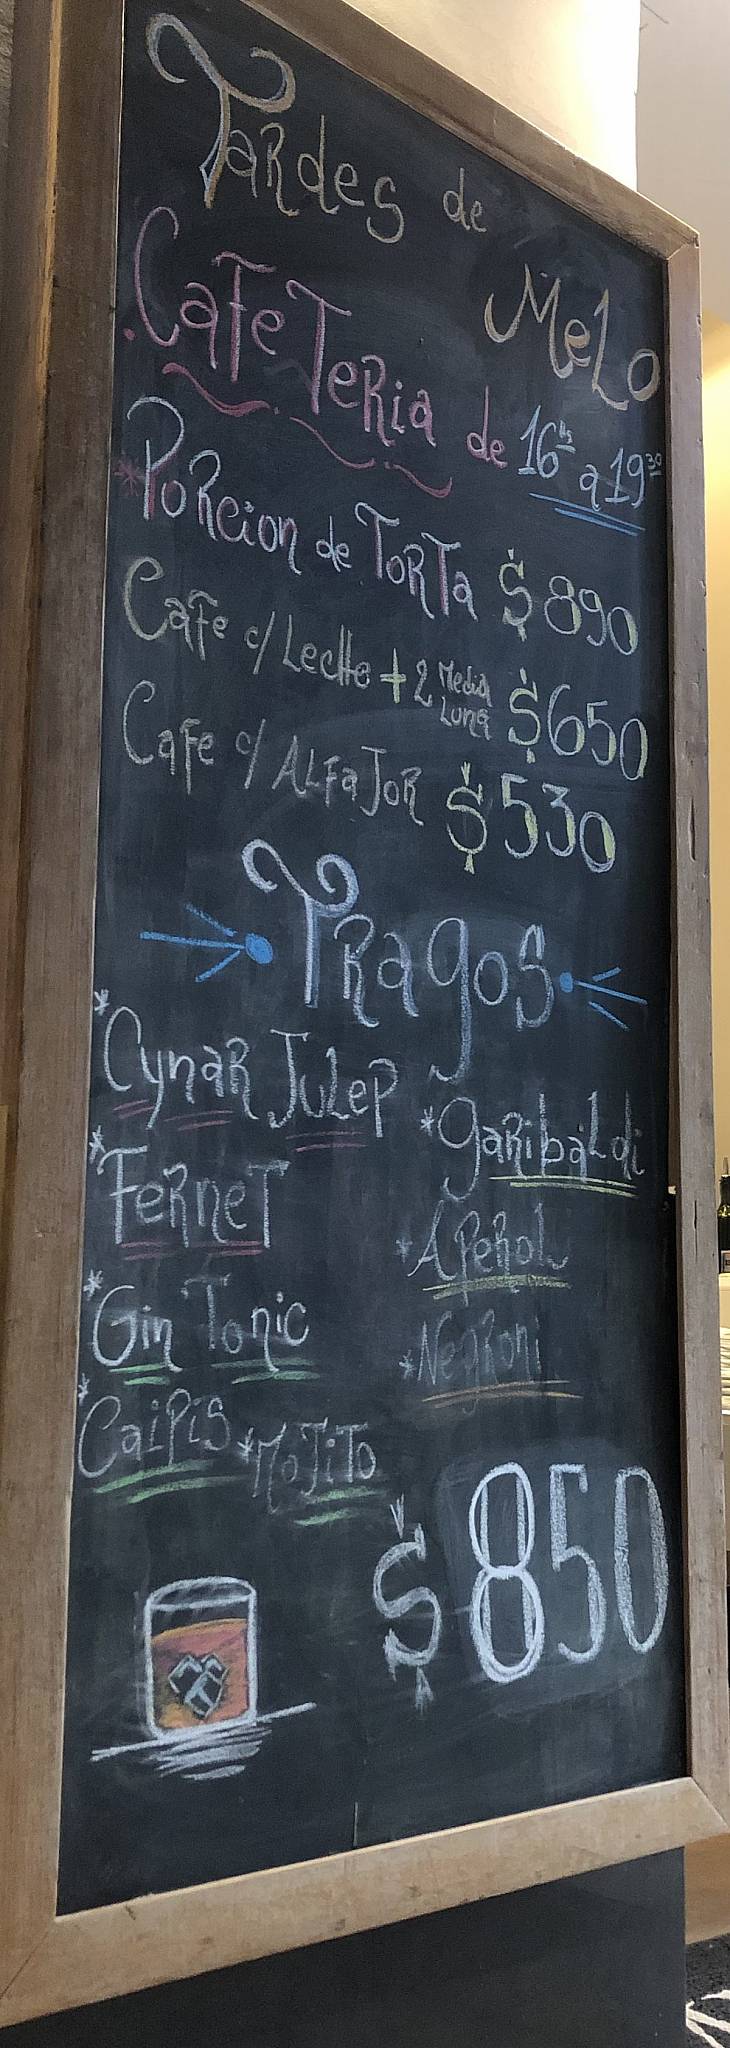 Tardes de
Melo
Cafeteria de 16hs a 19 30
* Porcion de Torta $890
Cafe c/ Leche + 2 Media Luna $650
Cafe c/ Alfajor $530
Tragos
* Cynar Julep
* Garibaldi
* Fernet
* Aperol
* Gin Tonic
* Negroni
* Caipis * Mojito
$850